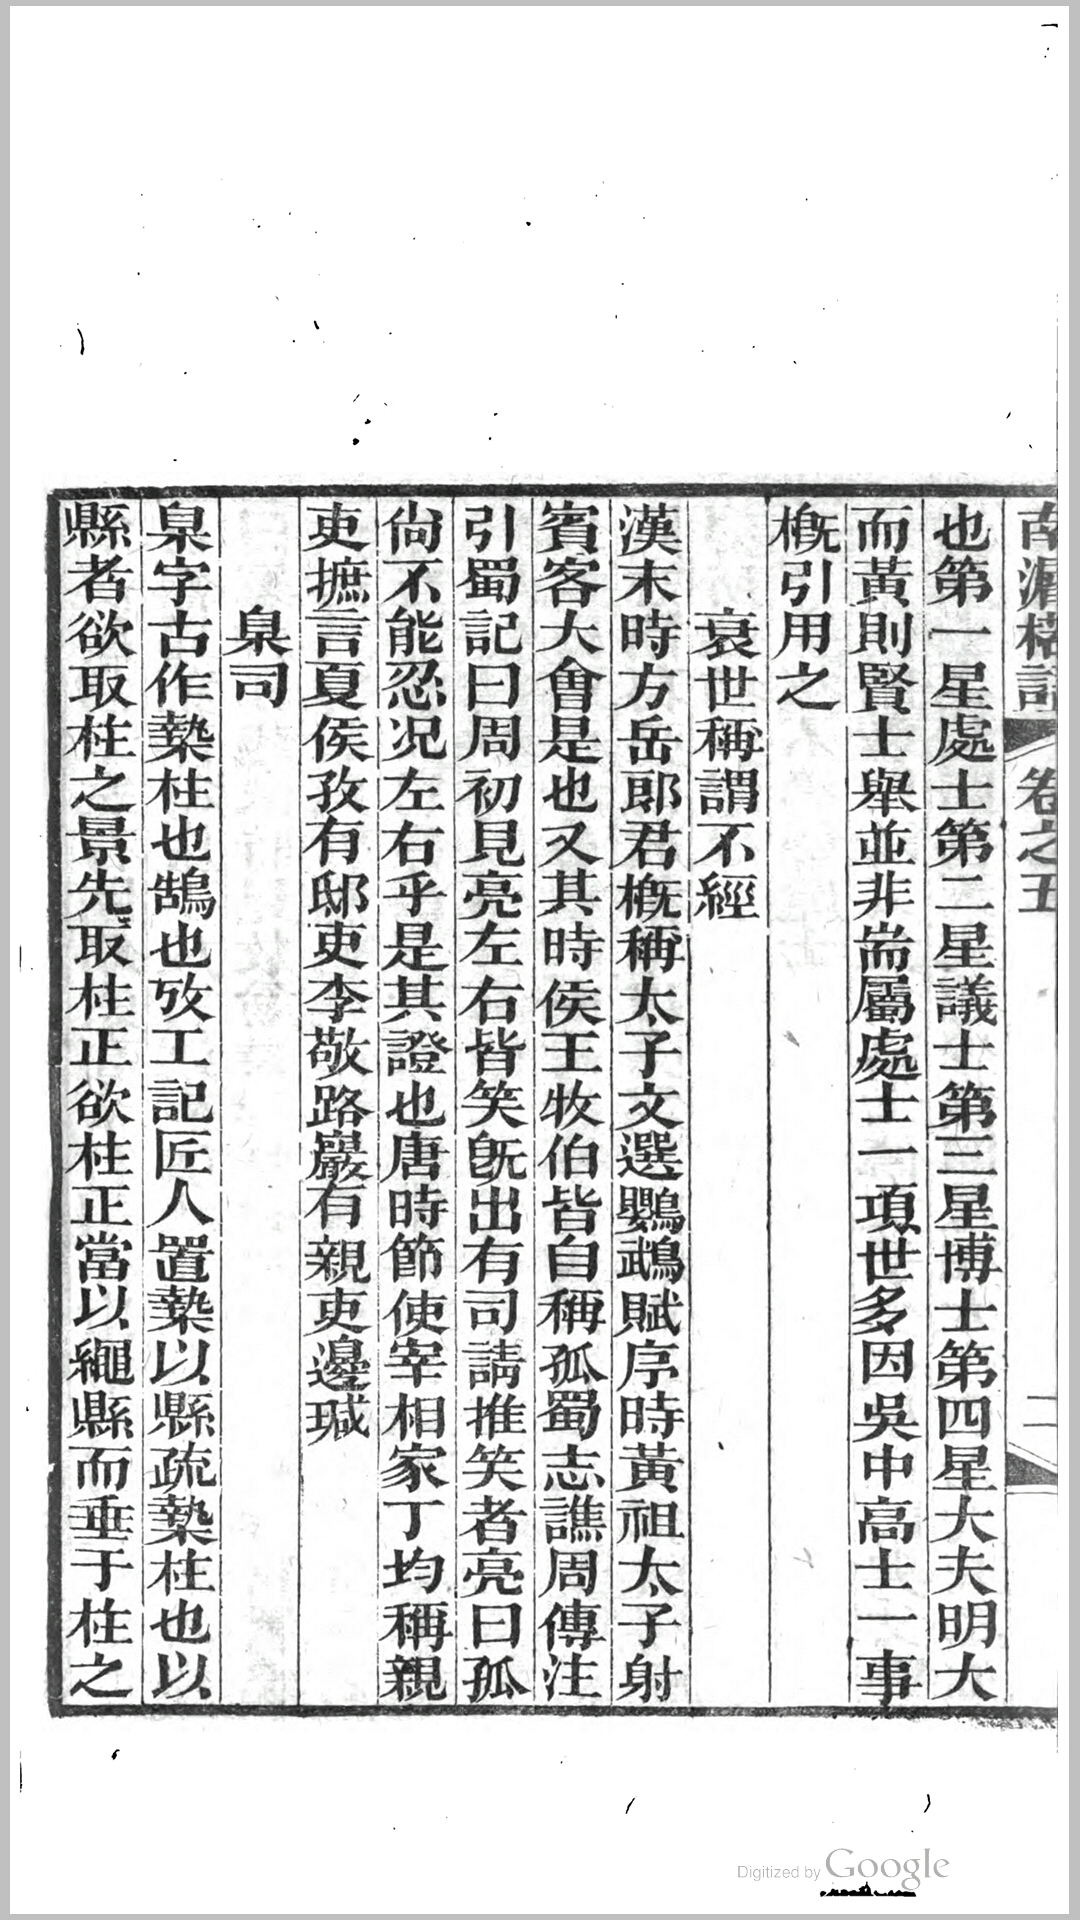 南漘楛語 卷之五 二
也第一星處士第二星議士第三星博士第四星大夫明大
而黃則賢士舉並非耑屬處士一項世多因吳中高士一事
槪引用之
衰世稱謂不經
漢末時方岳郎君槪稱太子文選鸚鵡賦序時黃祖太子射
賓客大會是也又其時侯王牧伯皆自稱孤蜀志譙周傳注
引蜀記曰周初見亮左右皆笑旣出有司請推笑者亮曰孤
尙不能忍况左右乎是其證也唐時節使宰相家丁均稱親
吏摭言夏侯孜有邸吏李敬路巖有親吏邊瑊
臬司
臬字古作槷柱也鵠也攷工記匠人置槷以縣疏槷柱也以
縣者欲取柱之景先取柱正欲柱正當以繩縣而垂于柱之
Digitized by Google